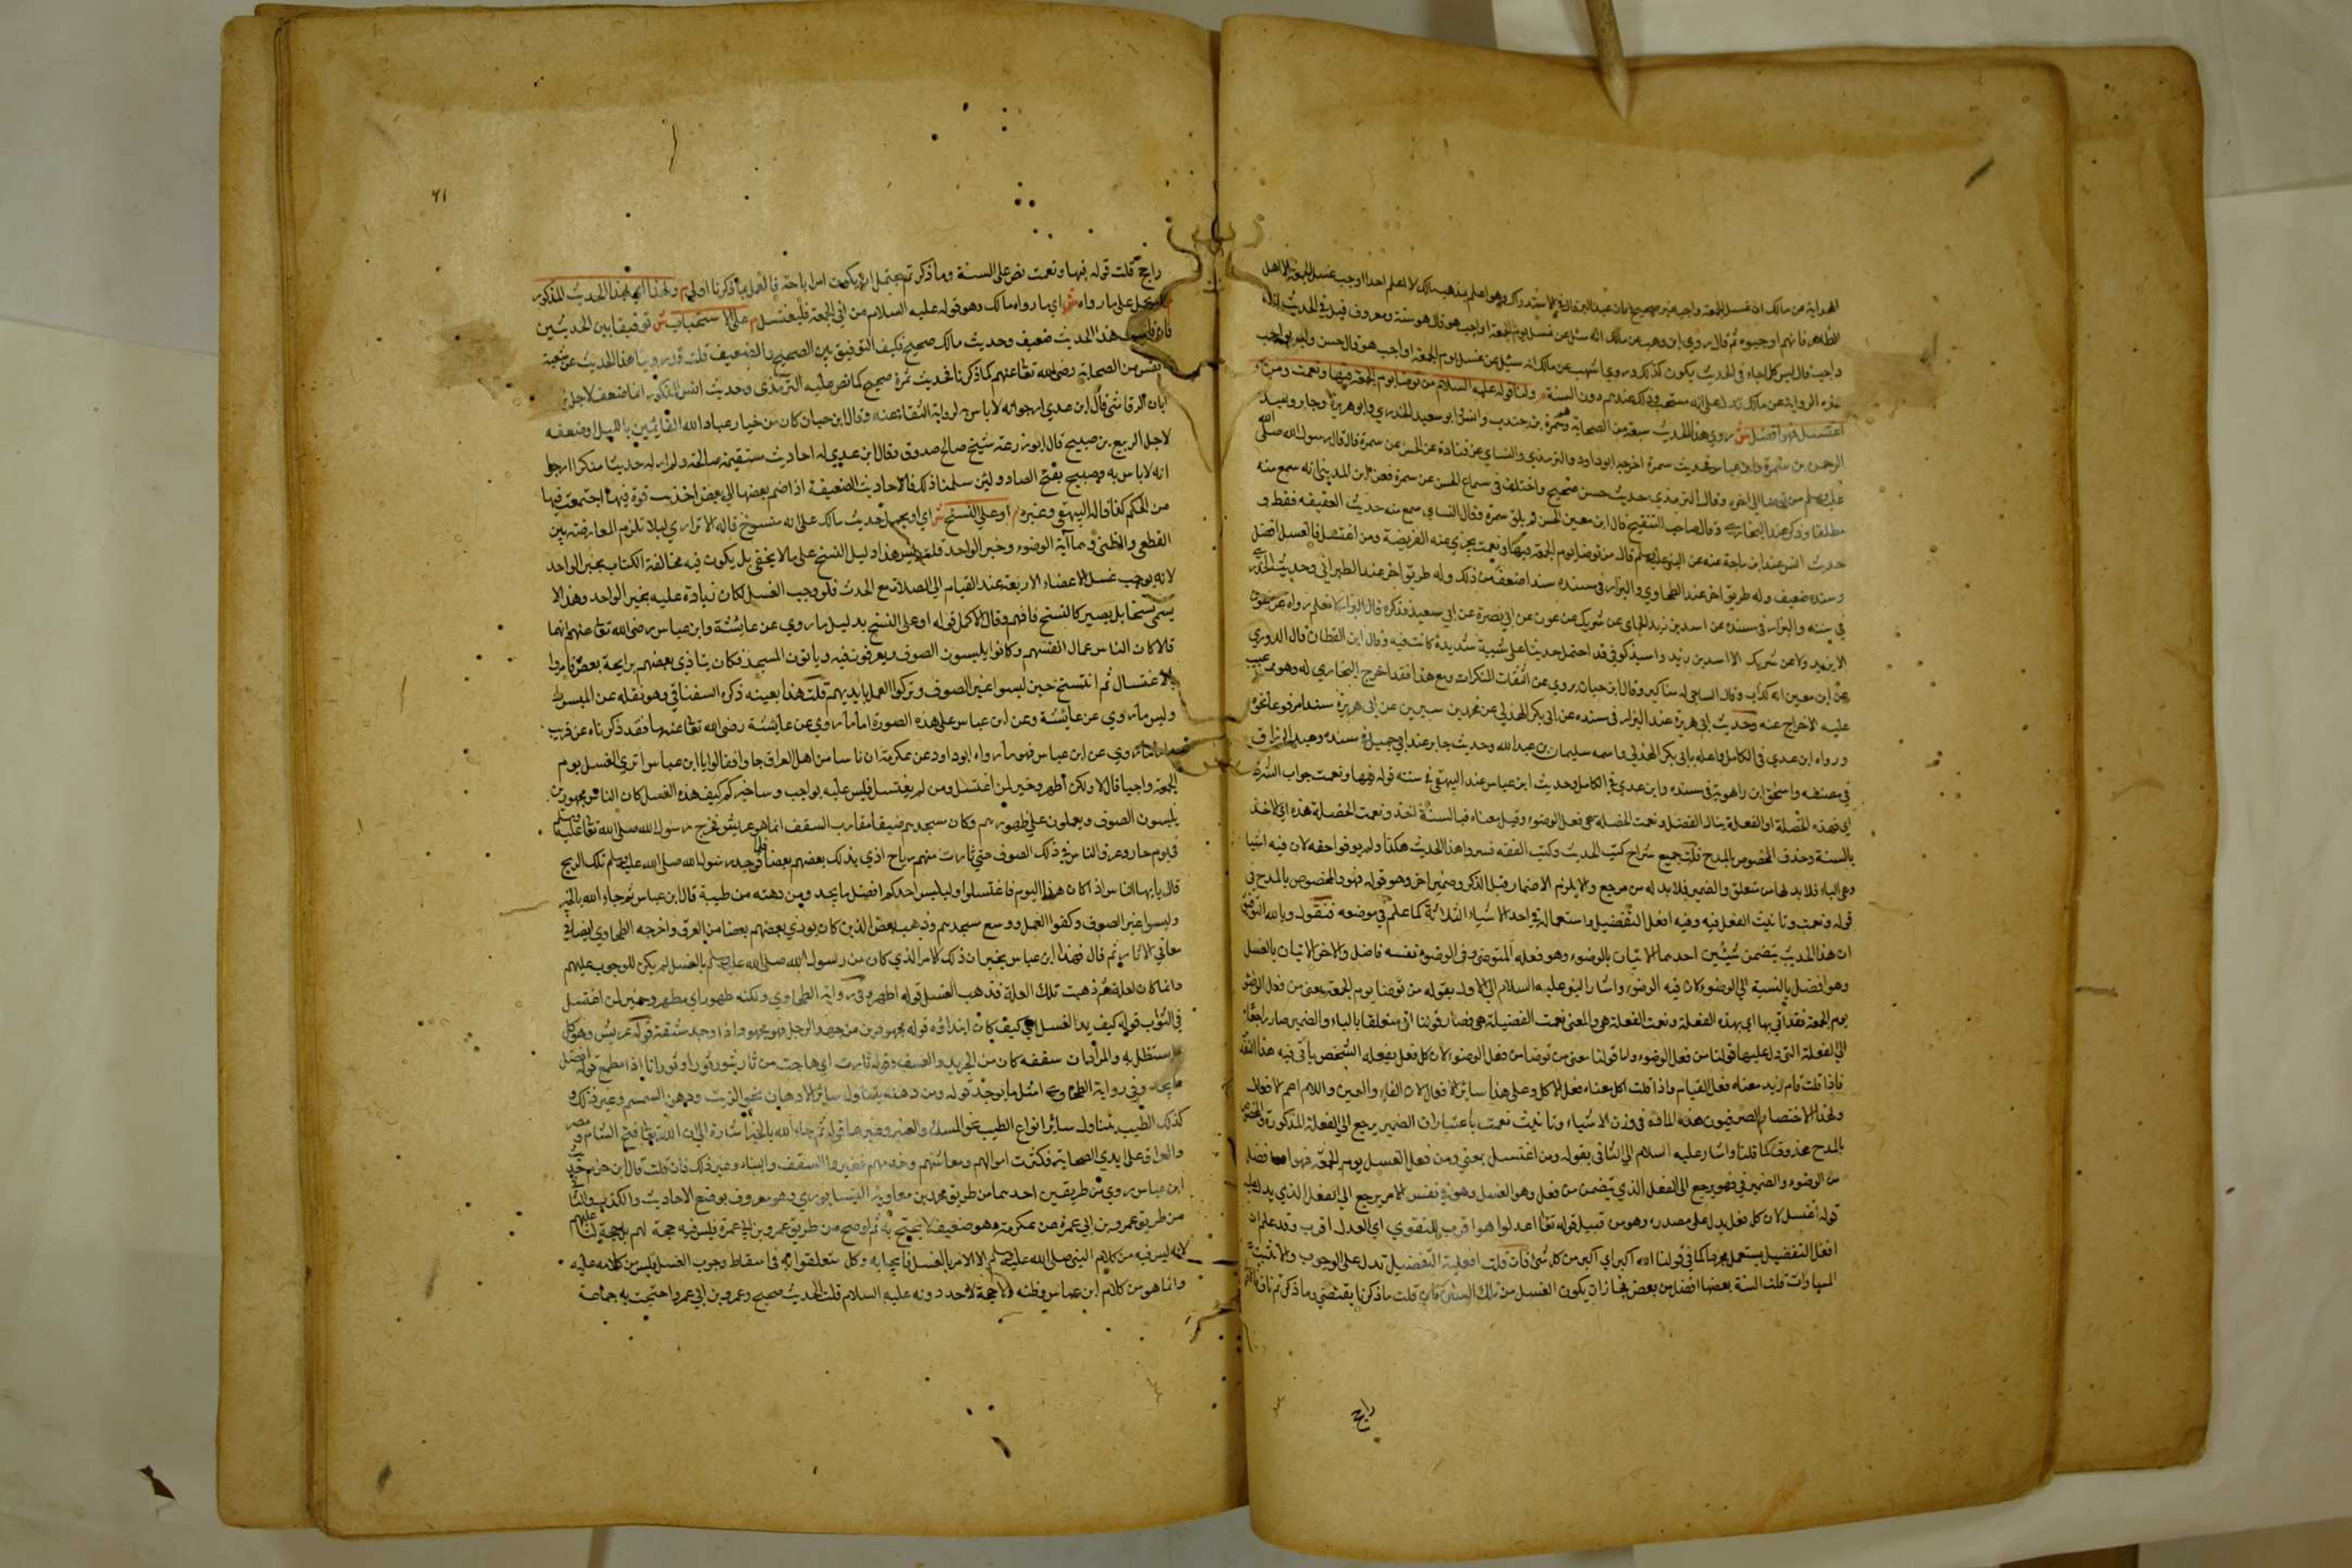 الهداية عن مالك ان غسل الجمعة واجب غير صحيح فان ابن عبد البر قال في الاستدراك وهو اعلم بمذهب مالك لا اعلم احدا اوجب غسل الجمعة الا اهل
الظاهر فانهم اوجبوه ثم قال روي ابن وهب عن مالك انه سئل عن غسل يوم الجمعة اواجب هو قال هو سنة ومعروف قيل في الحديث انه
واجب قال ليس كل ما جاء في الحديث يكون كذلك وروي اشهب عن مالك انه سئل عن غسل يوم الجمعة اواجب هو قال حسن وليس بواجب
هذه الرواية عن مالك تدل على انه مستحب وذلك عندهم دون السنة م ولنا قوله عليه السلام من توضأ يوم الجمعة فبها ونعمت ومن
اغتسل فهو افضل ش روي هذا الحديث سبعة من الصحابة وهم سمرة بن جندب وانس وابو سعيد الخدري وابو هريرة وجابر وعبد
الرحمن بن سمرة وابن عباس فحديث سمرة اخرجه ابو داود والترمذي والنسائي عن قتادة عن الحسن عن سمرة قال قال رسول الله صلى الله
عليه وسلم من توضأ الى اخره وقال الترمذي حديث حسن صحيح واختلف في سماع الحسن عن سمرة فعن ابن المديني انه سمع منه
مطلقا وذكره عنه البخاري وقال صاحب التنقيح قال ابن معين الحسن لم يلق سمرة وقال النسائي سمع منه حديث العقيقة فقط و
حديث انس عند ابن ماجة عنه عن النبي عليه وسلم قال من توضأ يوم الجمعة فبها ونعمت يجزي عنه الفريضة ومن اغتسل فالغسل افضل
وسنده ضعيف وله طريق اخر عند الطحاوي والبزار في مسنده سندا ضعف من ذلك وله طريق اخر عند الطبراني وحديث الخدري
في سننه والبزار في مسنده عن اسد بن زيد الجمال عن شريك عن عوف عن ابي نضرة عن ابي سعيد فذكره قال البزار لا نعلم رواه عن عوف
الا شريك ولا عن شريك الا اسد بن زيد واسيد كوفي قد احتمل حديثه على شيعية شديدة كانت فيه وقال ابن القطان قال الدوري
عن ابن معين انه كذاب وقال الساجي له مناكير وقال ابن حبان يروي عن الثقات المنكرات ومع هذا فقد اخرج البخاري له وهو ممن عيب
عليه الاخراج عنه وحديث ابي هريرة عند البزار في مسنده عن ابي بكر الهذلي عن محمد بن سيرين عن ابي هريرة سندا مرفوعا نحوه
ورواه ابن عدي في الكامل واعله بابي بكر الهذلي واسمه سليمان بن عبد الله وحديث جابر عند ابي حميد في مسنده وعبد الرزاق
في مصنفه واسحق ابن راهوية في مسنده وابن عدي في الكامل وحديث ابن عباس عند البيهقي في سننه قوله فبها ونعمت جواب الشرط
اي فهذه الخصلة او الفعلة ينال الفضل ونعمت الخصلة هي فعل الوضوء وقيل معناه فبالسنة اخذ ونعمت الخصلة هذه اي الاخذ
بالسنة وحذف المخصوص بالمدح قلت جميع شراح كتب الحديث وكتب الفقه فسروا هذا الحديث هكذا ولم يوفوا حقه لان فيه اشيا
وهي الباء فلا بد لها من متعلق والضمير فلا بد له من مرجع والا يلزم الاضمار قبل الذكر وضمير اخر وهو قوله فهو والمخصوص بالمدح في
قوله ونعمت وتانيث الفعل فيه وفيه افعل التفضيل واستعماله في احد الاشياء الثلاثة كما علم في موضعه فنقول وبالله التوفيق
ان هذا الحديث يتضمن شيئين احدهما الاتيان بالوضوء وهو فعله المتوضي وفي الوضوء نفسه فاضل والاخر الاتيان بالغسل
وهو افضل بالنسبة الى الوضوء لان فيه الوضوء واشار النبي عليه السلام الى الاول بقوله من توضأ يوم الجمعة يعني من فعل الوضوء
يوم الجمعة فقد اتي بها اي بهذه الفعلة ونعت الفعلة هي والمعنى نعمت الفضيلة هي فصار قولنا اتى متعلقا بالباء والضمير صار راجعا
الى الفعلة التي دل عليها قولنا من فعل الوضوء ولنا قولنا معنى من توضا من فعل الوضوء لان كل فعل يفعله الشخص ياتي فيه هذا التقدير
فاذا قلت قام زيد معناه فعل القيام واذا قلت اكل معناه فعل الاكل وعلى هذا سائر الافعال لان الفاء والعين واللام اعم الافعال
ولهذا اختصار الصرفيون هذه المادة في وزن الاشياء وتانيث نعمت باعتبار ان الضمير يرجع الى الفعلة المذكورة والمخصوص
بالمدح محذوف كما قلنا واشار عليه السلام الى الثاني بقوله ومن اغتسل يعني ومن فعل الغسل يوم الجمعة فهو افضل
من الوضوء والضمير في فهو يرجع الى الفعل الذي يتضمن من فعل وهو الغسل وهو في نفس الامر يرجع الى الفعل الذي يدل عليه
قوله اغتسل لان كل فعل يدل على مصدره وهو من قبيل قوله تعالى اعدلوا هو اقرب للتقوي اي العدل اقرب وقد علم ان
افعل التفضيل يستعمل مجردا كما في قولنا الله اكبر اي اكبر من كل شئ فان قلت افعلية التفضيل تدل على الوجوب والا تثبت
المساوات قلت السنة بعضها افضل من بعض فجاز ان يكون الغسل من تلك السنن فان قلت ما ذكرنا يقتضي وما ذكرتم ناف
راجح
٦١
راجح قلت قوله فبها ونعمت نص على السنة وما ذكرتم يحتمل ان يكون امر اباحة فالعمل بما ذكرنا اولى م ولهذا اي بهذا الحديث المذكور
يحمل على ما رواه ش اي ما رواه مالك وهو قوله عليه السلام من اتى الجمعة فليغتسل م على الاستحباب ش توفيقا بين الحديثين
فان قلت هذا الحديث ضعيف وحديث مالك صحيح فكيف التوفيق بين الصحيح والضعيف قلت قد روي هذا الحديث عن سبعة
انفس من الصحابة رضي الله تعالى عنهم كما ذكرنا فحديث سمرة صحيح كما نص عليه الترمذي وحديث انس المذكور انما ضعف لاجل يزيد بن
ابان الرقاشي قال ابن عدي ارجو انه لا باس به لرواية الثقات عنه وقال ابن حبان كان من خيار عباد الله القائمين بالليل او ضعفه
لاجل الربيع بن صبيح قال ابو زرعة شيخ صالح صدوق وقال ابن عدي له احاديث مستقيمة صالحة ولم ار له حديثا منكرا ارجوا
انه لا باس به وصبيح بفتح الصاد ولئن سلمنا ذلك فالاحاديث الضعيفة اذا ضم بعضها الى بعض اخذت قوة فيها اجتمعت فيها
من الحكم كذا قاله البيهقي وغيره م او على النسخ ش اي او يحمل حديث مالك على انه منسوخ قاله الاترازي ليلا تلزم المعارضة بين
القطعي والظني وهما آية الوضوء وخبر الواحد قلت ليس هذا دليل النسخ على ما لا يخفى بل يكون فيه مخالفة الكتاب بخبر الواحد
لانه يوجب غسل الاعضاء الاربعة عند القيام الى الصلاة مع الحدث فلو وجب الغسل لكان زيادة عليه بخبر الواحد وهذا لا
يسمى نسخا بل يصير كالنسخ فافهم وقال الاكمل قوله او على النسخ بدليل ما روي عن عائشة وابن عباس رضي الله تعالى عنهم انهما
قالا كان الناس عمال انفسهم وكانوا يلبسون الصوف ويعرقون فيه وياتون المسجد فكان يتاذى بعضهم برايحة بعض فامروا
بالاغتسال ثم انتسخ حين لبسوا غير الصوف وتركوا العمل بايديهم قلت هذا بعينه ذكره السغناقي وهو نقله عن المبسوط
وليس ما روي عن عائشة وعن ابن عباس على هذه الصورة اما ما روي عن عائشة رضي الله تعالى عنها فقد ذكرناه عن قريب
واما ما روي عن ابن عباس فهو ما رواه ابو داود عن عكرمة ان ناسا من اهل العراق جاوا فقالوا يا ابن عباس اترى الغسل يوم
الجمعة واجبا قال لا ولكن اطهر وخير لمن اغتسل ومن لم يغتسل فليس عليه بواجب وساخبركم كيف هذه الغسل كان الناس مجهودين
يلبسون الصوف ويعملون على ظهورهم وكان مسجدهم ضيقا مقارب السقف انما هو عريش فخرج رسول الله صلى الله تعالى عليه وسلم
في يوم حار وعرق الناس في ذلك الصوف حتى ثارت منهم رياح اذي بذلك بعضهم بعضا فلما وجد رسول الله صلى الله عليه وسلم تلك الريح
قال يا ايها الناس اذا كان هذا اليوم فاغتسلوا وليلبس احدكم افضل ما يجد ومن دهنه من طيبة قال ابن عباس ثم جاء الله بالخير
ولبسوا غير الصوف وكفوا العمل ووسع مسجدهم وذهب بعض الذين كان يوذي بعضهم بعضا من العرق واخرجه الطحاوي ايضا في
معاني الاثار ثم قال فهذا ابن عباس يخبر ان ذلك الامر الذي كان من رسول الله صلى الله عليه وسلم بالغسل لم يكن للوجوب عليهم
وانما كان لعلة ثم ذهبت تلك العلة فذهب الغسل قوله اطهر وفي رواية الطحاوي ولكنه طهور اي مطهر وخير لمن اغتسل
في الثواب قوله كيف بدأ الغسل اي كيف كان ابتداؤه قوله مجهودين من جهد الرجل فهو مجهود اذا وجد مشقة قوله عريش وهو كل
ما يستظل به والمراد ان سقفه كان من الجريد والسعف قوله ثارت اي هاجت من ثار يثور ثورا وثورانا اذا سطع قوله افضل
ما يجد وفي رواية الطحاوي امثل ما يجد قوله ومن دهنه يتناول سائر الادهان نحو الزيت ودهن السمسم وغير ذلك و
كذلك الطيب يتناول سائر انواع الطيب نحو المسك والعنبر وغيرهما قوله ثم جاء الله بالخير اشارة الى ان الله تعالى فتح الشام ومصر
والعراق على ايدي الصحابة فكثرت اموالهم ومعاشهم وخدمهم فغيروا السقف والبناء وغير ذلك فان قلت قال ابن حزم خبر
ابن عباس روي من طريقين احدهما من طريق محمد بن معاوية النيسابوري وهو معروف بوضع الاحاديث والكذب والثاني
من طريق عمرو بن ابي عمرة عن عكرمة وهو ضعيف لا يحتج به ثم لو صح من طريق عمرو بن ابي عمرة فليس فيه حجة لهم بل حجة لنا عليهم
لانه ليس فيه من كلام النبي صلى الله عليه وسلم الا الامر بالغسل فايجابه وكل متعلقوا به في اسقاط وجوب الغسل فليس من كلامه عليه
وانما هو من كلام ابن عباس وظنه ولا حجة لاحد دونه عليه السلام قلت الحديث صحيح وعمرو بن ابي عمرو احتجت به جماعة